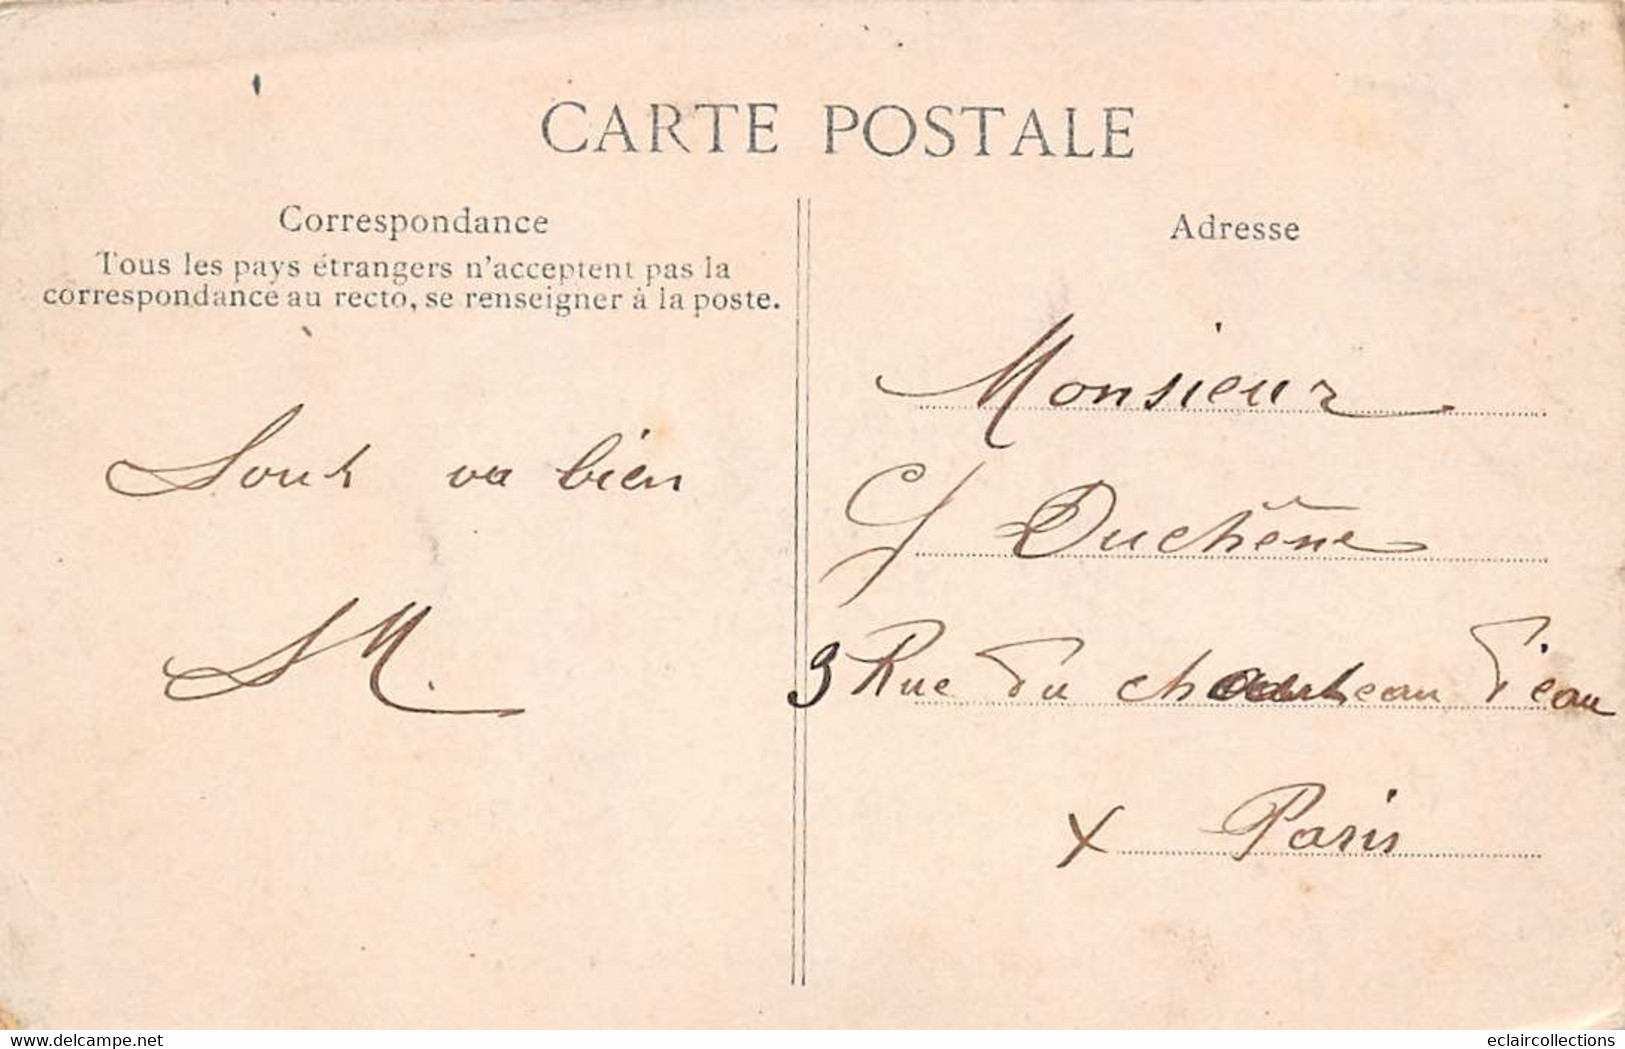 CARTE POSTALE
Correspondance
Tous les pays étrangers n'acceptent pas la
correspondance au recto, se renseigner à la poste.
Tout va bien
Adresse
Monsieur
Duchêne
3 Rue du chateau d'eau
X Paris
www.delcampe.net
eclaircollections